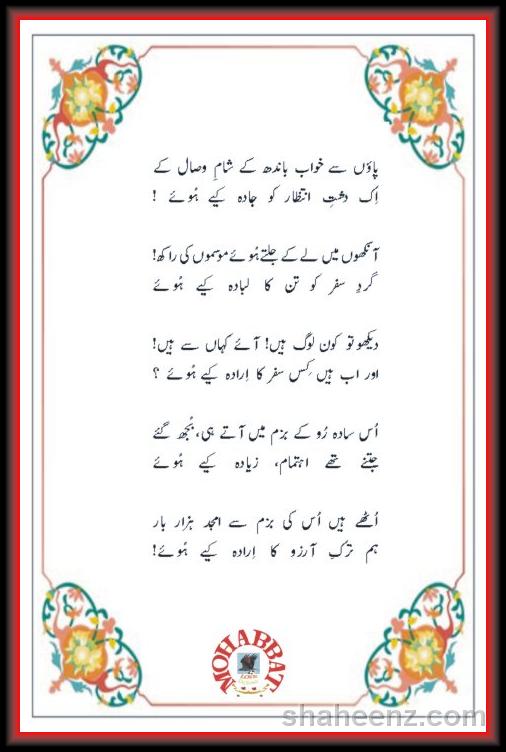 پاؤں سے خواب باندھ کے شامِ وصال کے
اِک دشتِ انتظار کو جادہ کیے ہُوئے !
آنکھوں میں لے کے جلتے ہُوئے موسموں کی راکھ!
گردِ سفر کو تن کا لبادہ کیے ہُوئے
دیکھو تو کون لوگ ہیں! آئے کہاں سے ہیں!
اور اب ہیں کِس سفر کا اِرادہ کیے ہُوئے ؟
اُس سادہ رُو کے بزم میں آتے ہی، بُجھ گئے
جتنے تھے اہتمام، زیادہ کیے ہُوئے
اُٹھے ہیں اُس کی بزم سے امجد ہزار بار
ہم ترکِ آرزو کا اِرادہ کیے ہُوئے!
MOHABBAT
shaheenz.com